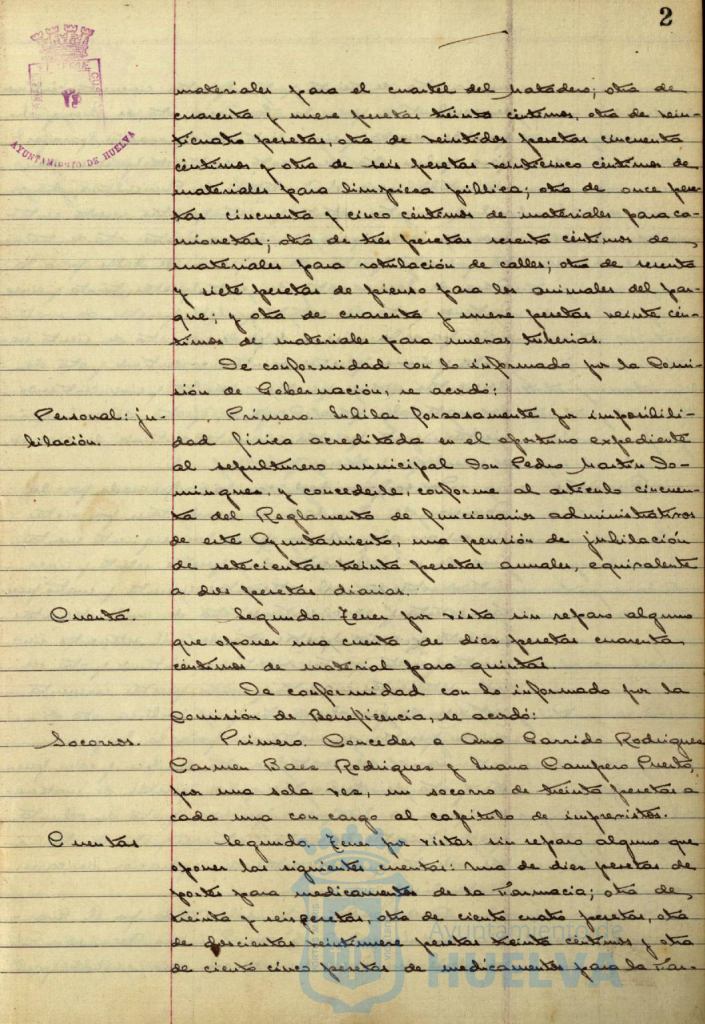 2
AYUNTAMIENTO DE HUELVA
materiales para el cuartel del Matadero; otra de
cuarenta y nueve pesetas treinta céntimos, otra de vein-
ticuatro pesetas, otra de veintidos pesetas cincuenta
céntimos y otra de seis pesetas veinticinco céntimos de
materiales para limpieza pública; otra de once pese-
tas cincuenta y cinco céntimos de materiales para ca-
mionetas; otra de tres pesetas sesenta céntimos de
materiales para rotulación de calles; otra de sesenta
y siete pesetas de pienso para los animales del par-
que; y otra de cuarenta y nueve pesetas veinte cén-
timos de materiales para nuevas tuberias.
De conformidad con lo informado por la Comi-
sión de Gobernación, se acordó:
Personal: ju-
bilación.
Primero. Jubilar forzosamente por imposibili-
dad física acreditada en el oportuno expediente
al sepulturero municipal Don Pedro Martín Do-
minguez, y concederle, conforme al artículo cincuen-
ta del Reglamento de funcionarios administrativos
de este Ayuntamiento, una pensión de jubilación
de setecientas treinta pesetas anuales, equivalente
a dos pesetas diarias.
Cuenta.
Segundo. Tener por vista sin reparo alguno
que oponer una cuenta de diez pesetas cuarenta
céntimos de material para quintas.
De conformidad con lo informado por la
Comisión de Beneficencia, se acordó:
Socorros.
Primero. Conceder a Ana Garrido Rodriguez
Carmen Baez Rodriguez y Juana Campero Puerto,
por una sola vez, un socorro de treinta pesetas a
cada una con cargo al capitulo de imprevistos.
Cuentas
Segundo. Tener por vistas sin reparo alguno que
oponer las siguientes cuentas: una de diez pesetas de
portes para medicamentos de la Farmacia; otra de
treinta y seis pesetas, otra de ciento cuatro pesetas, otra
de doscientas veintinueve pesetas treinta céntimos y otra
de ciento cinco pesetas de medicamentos para la Far-
Ayuntamiento de
HUELVA